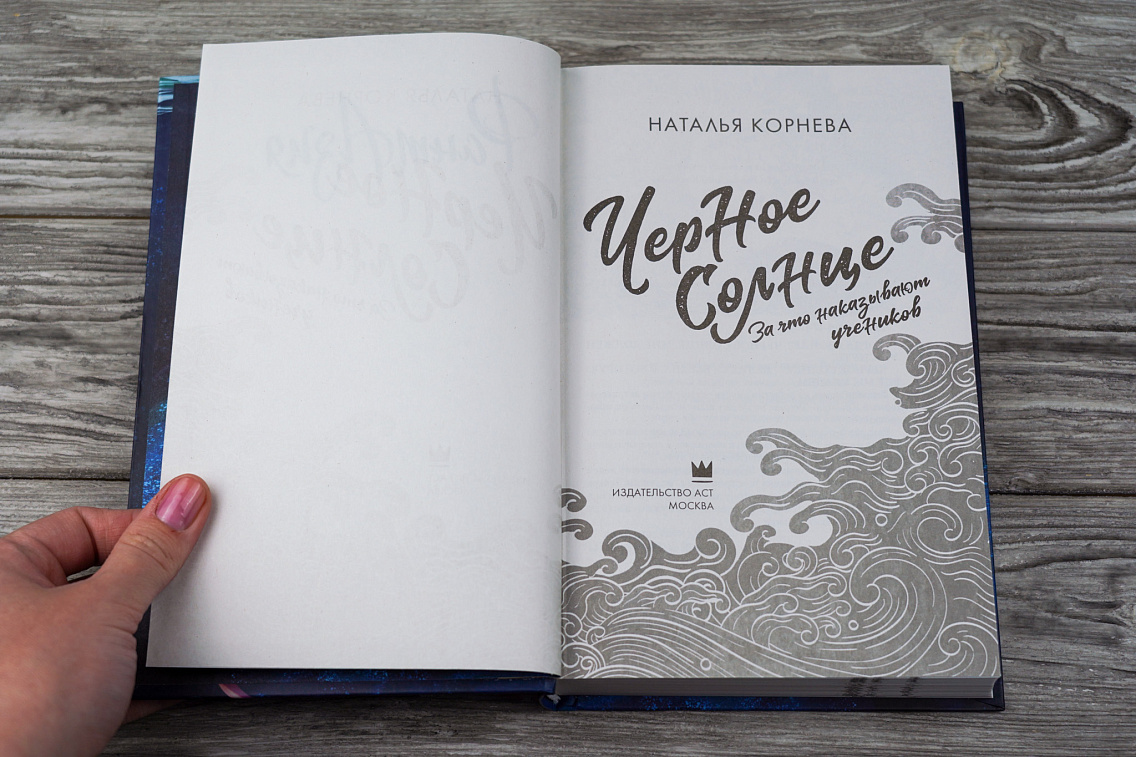 НАТАЛЬЯ КОРНЕВА
Черное
Солнце
За что наказывают
учеников
ИЗДАТЕЛЬСТВО АСТ
МОСКВА